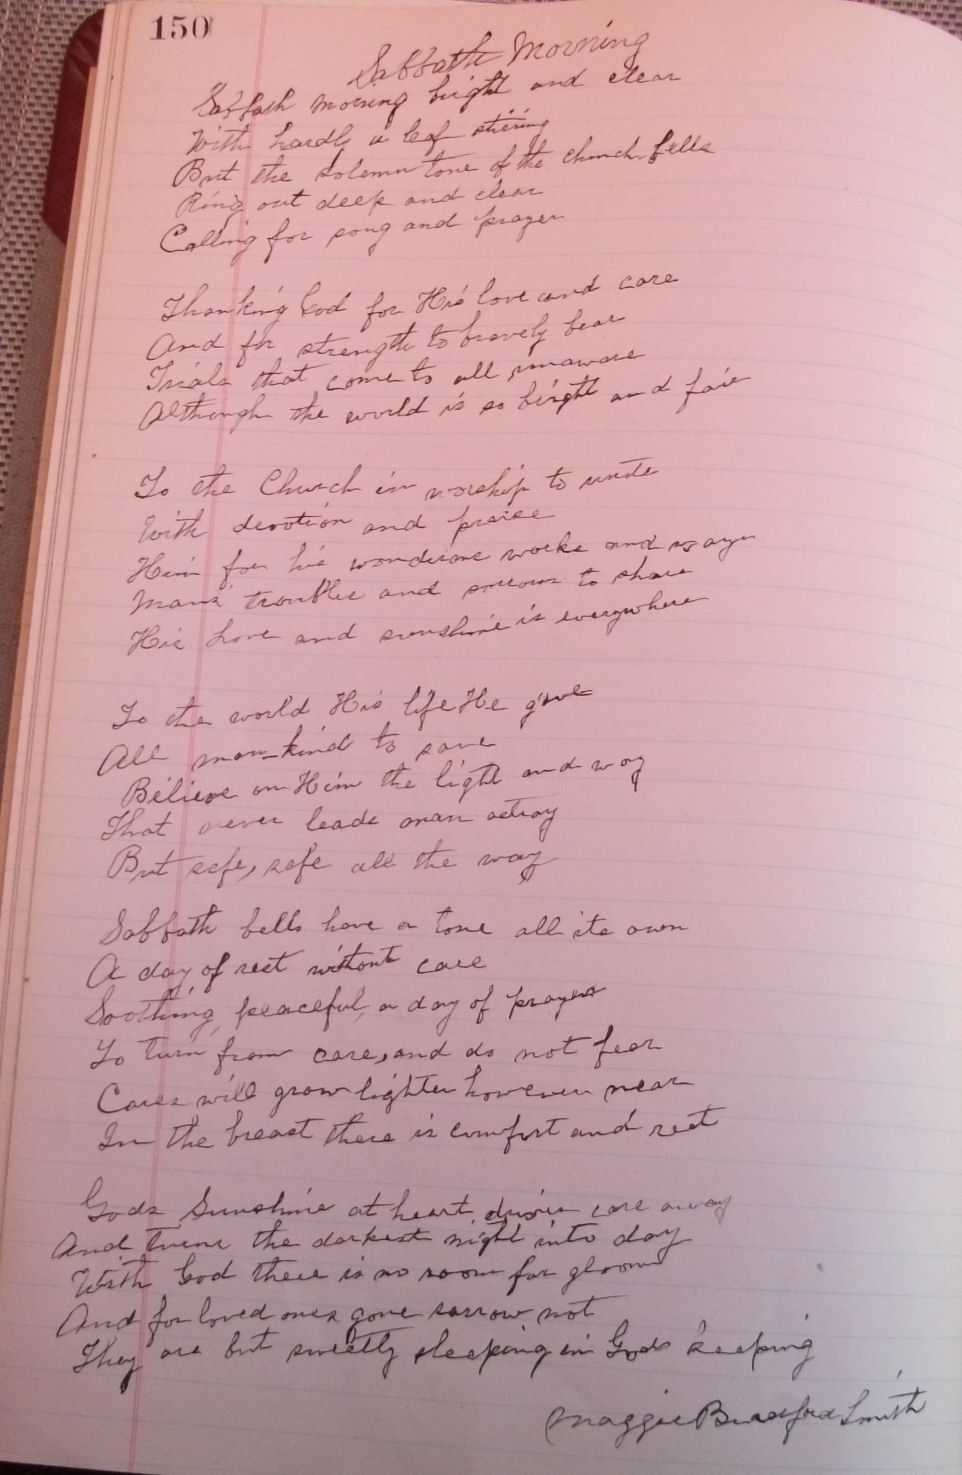 150
Sabbath Morning
Sabbath morning bright and clear
With hardly a leaf stiring
But the solemn tone of the church bells
Ring out deep and clear
Calling for song and prayer
Thanking God for His love and care
And for strength to bravely bear
Trials that come to all unaware
Although the world is so bright and fair
To the Church in worship to unite
With devotion and praise
Him for his wonderous works and ways
Mans troubles and sorrows to share
His Love and sunshine is everywhere
To the world His life He gave
All man-kind to save
Believe on Him the light and way
That never leads man astray
But safe, safe all the way
Sabbath bells have a tone all its own
A day of rest without care
Soothing, peaceful, a day of prayer
To turn from care, and do not fear
Cares will grow lighter however near
In the breast there is comfort and rest
Gods Sunshine at heart drives care away
And turns the darkest night into day
With God there is no room for gloom
And for loved ones gone sorrow not
They are but sweetly sleeping in Gods keeping
Maggie Bradford Smith